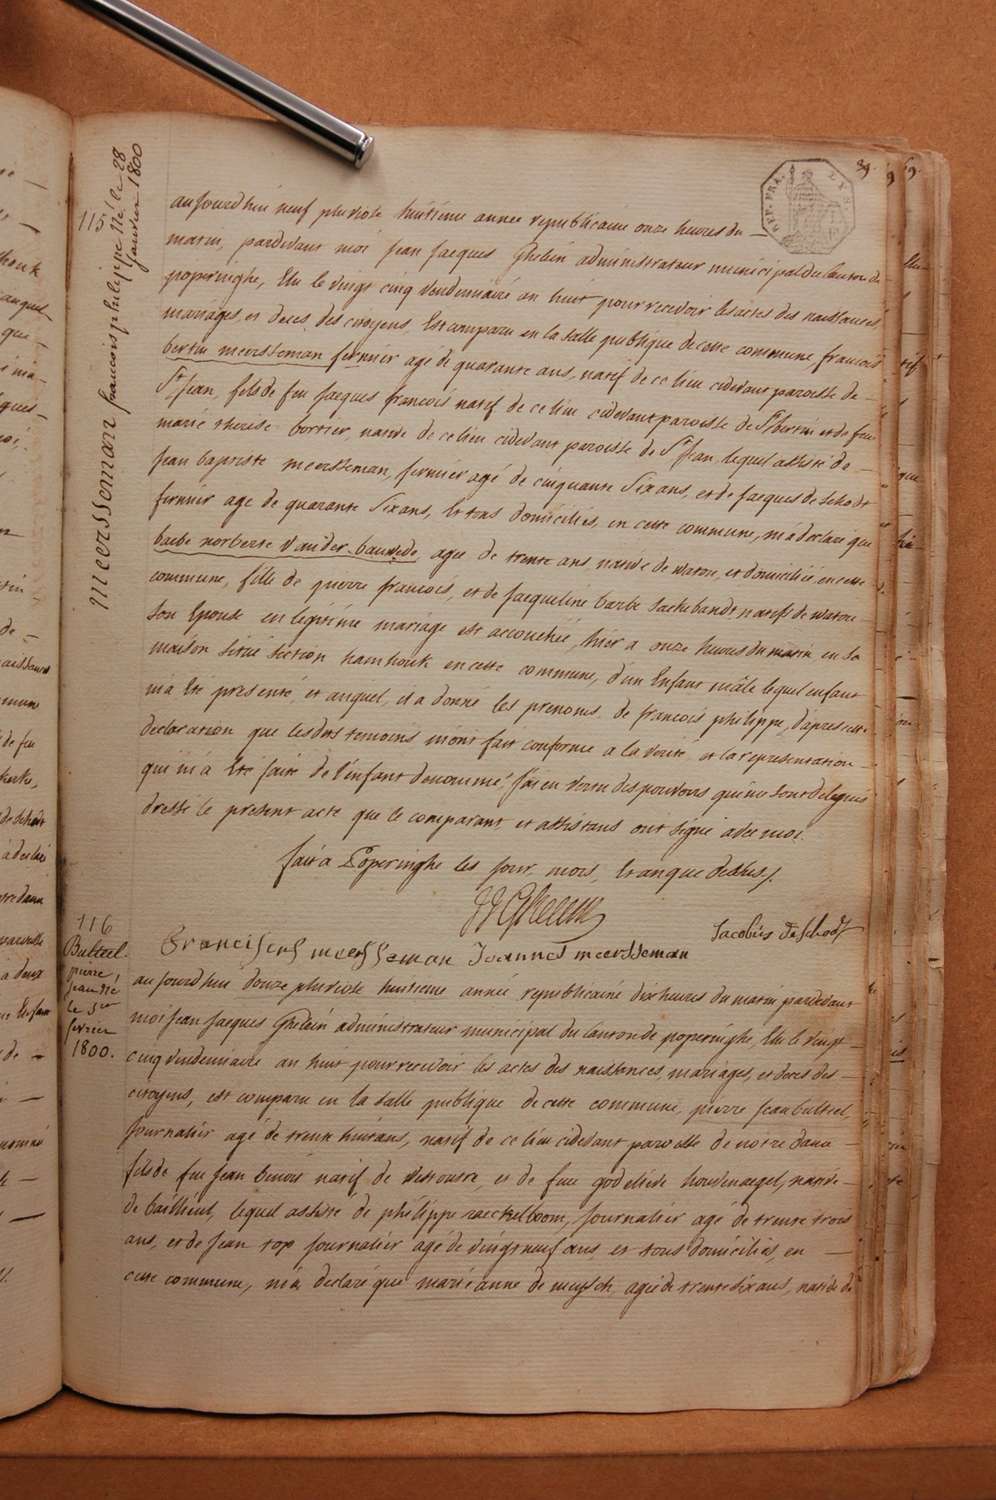 39.
REP. FRA.
115
meersseman francois philippe Né le 28
Janvier 1800
aujourd'hui neuf pluviose huitieme annee republicaine onze heures du
matin, pardevant moi Jean Jacques Ghelein administrateur municipal du Canton de
poperinghe, Elu le vingt cinq vendemiaire an huit pour recevoir les actes des naissances,
mariages, et deces, des citoyens, Est comparu en la salle publique de cette commune, francois
bertin meersseman fermier agé de quarante ans, natif de ce lieu cidevant paroisse de
St Jean, fils de feu Jacques francois natif de ce lieu cidevant paroisse de St bertin et de feu
marie therese bortier, native de ce lieu cidevant paroisse de St Jean, lequel assisté de
Jean baptiste meersseman, fermier agé de cinquante Six ans, et de Jacques de Schodt
fermier age de quarante Six ans, Et tous domiciliés, en cette commune, m'a declaré que
barbe norberte Vander bauwede, agee de trente ans native de watou, et domiciliée en cette
commune, fille de pierre francois, et de Jacqueline barbe Jackebandt natifs de watou
Son Epouse en légitime mariage est accouchée, hier a onze heures du matin en sa
maison Située Section hamhouk en cette commune, d'un Enfant mâle lequel enfant
m'a Eté presenté, et auquel, il a donné les prenoms de francois philippe, d'apres cette
declaration que lesdits temoins m'ont fait conforme a la verité, et la representation
qui m'a Eté faite de l'enfant denommé, J'ai en vertu des pouvoirs qui me sont delegués
dressé le present acte que le comparant et assistans ont signé avec moi
fait a Poperinghe les jour, mois, et an que dessus.
JJ Ghelein
Jacobus De Schodt
Franciscus meersseman Joannes meersseman
116
Bulteel
pierre,
Jean Né
le 1er
fevrier
1800.
aujourd'hui douze pluviose huitieme année republicaine dix heures du matin pardevant
moi Jean Jacques Ghelein administrateur municipal du Canton de poperinghe, Elu le vingt
cinq vendemiaire an huit pour recevoir les actes des naissances, mariages, et deces des
citoyens, est comparu en la salle publique de cette commune, pierre Jean bulteel
Journalier agé de trente huit ans, natif de ce lieu cidevant paroisse de notre dame
fils de feu Jean benoit natif de , et de feue godeliève houvenagel, native
de bailleul, lequel assisté de philippe raeckelboom, Journalier agé de trente trois
ans, et de Jean top Journalier agé de vingt neuf ans, et tous domiciliés, en
cette commune, m'a declaré que marie anne de meysch, agée de trente six ans, native de